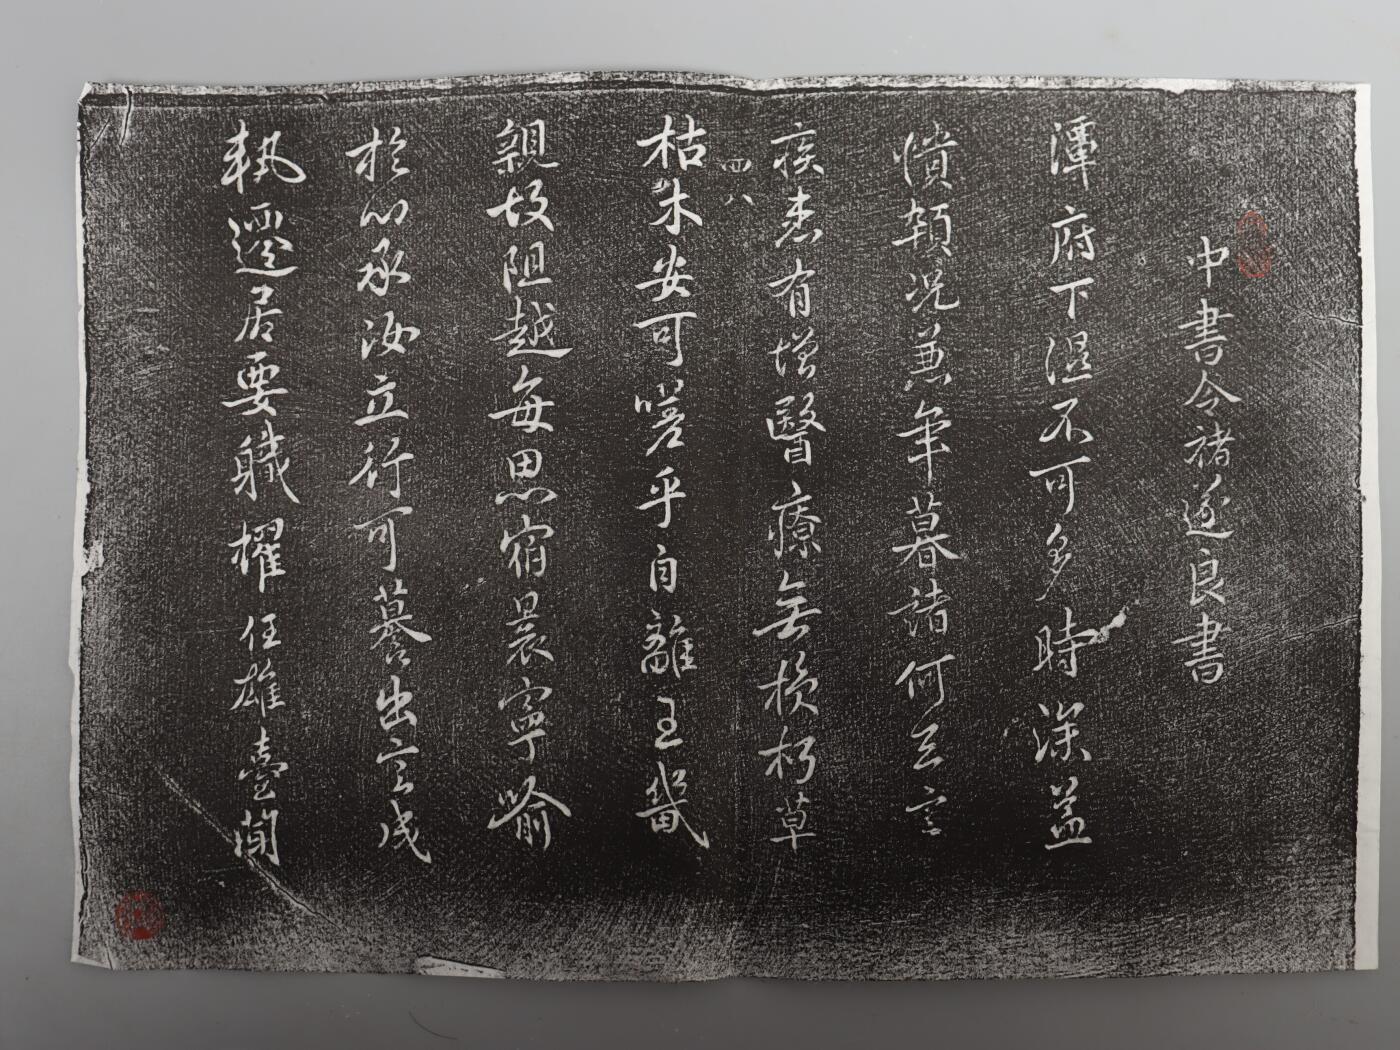 中書令褚遂良書
潭府下濕不可多時深益
憒頓況兼年暮諸何足言
疾恙有增醫療無損朽草
四八
枯木安可嗟乎自離王畿
親故阻越每思宿昔寧喻
於心承汝立行可慕善出言成
執遷居要職擢任雄臺閣